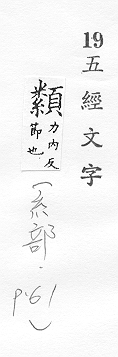 19五經文字
纇力内反
節也
(糸部·
p.61)